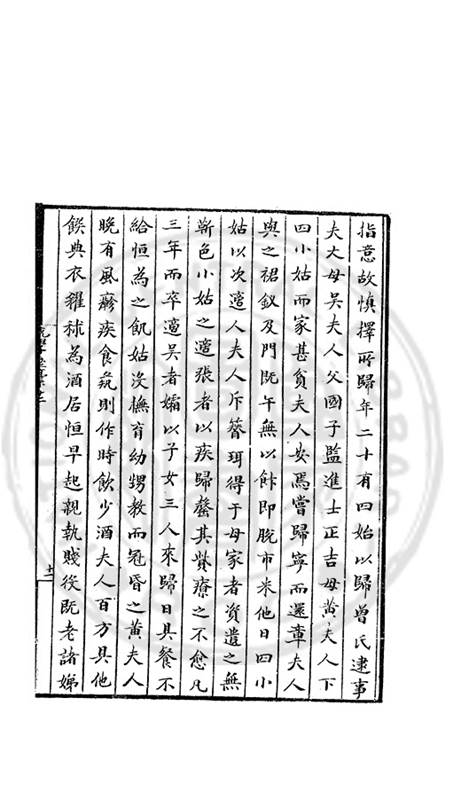 指意故慎擇所歸年二十有四始以歸曾氏逮事
夫大母吳夫人父國子監進士正吉母黃夫人下
四小姑而家甚貧夫人安焉嘗歸寧而還章夫人
與之裙釵及門旣午無以飰即脫市米他日四小
姑以次適人夫人斥簪珥得于母家者資遣之無
靳色小姑之適張者以疾歸罄其貲療之不愈凡
三年而卒適吳者孀以子女三人來歸日具餐不
給恒為之飢姑沒撫育幼甥教而冠昏之黃夫人
晚有風癊疾食氣則作時飲少酒夫人百方具他
餽典衣糴秫為酒居恒早起親執賤役旣老諸娣